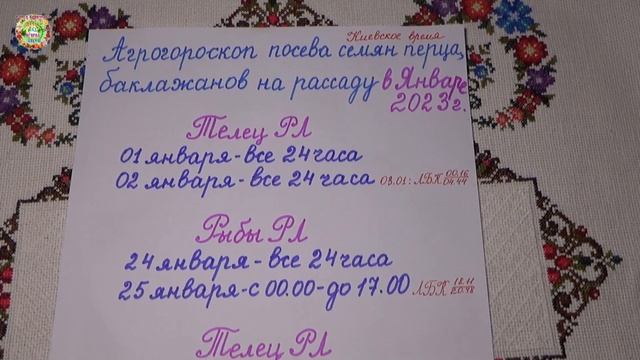 Киевское время
Агрогороскоп посева семян перца,
баклажанов на рассаду в Январе
2023г.
Телец РЛ
01 января - все 24 часа
02 января - все 24 часа 03.01: ЛБК 00.16 04.44
Рыбы РЛ
24 января - все 24 часа
25 января - с 00.00 - до 17.00 ЛБК
Телец РЛ